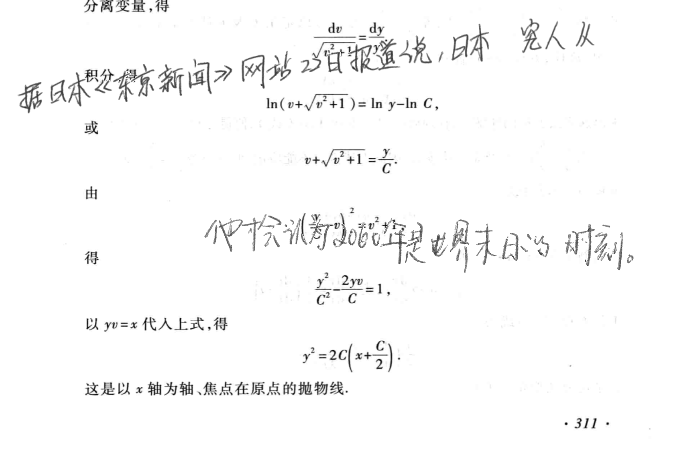 分离变量,得
dv/√(v²+1)=dy/y
积分,得
据日本《东京新闻》网站23日报道说,日本 穷人从
ln(v+√(v²+1))=ln y-ln C,
或
v+√(v²+1)=y/C.
由
(y/C-v)²=v²+1,
2060年是世界末日的时刻。
得
y²/C²-2yv/C=1,
以 yv=x 代入上式,得
y²=2C(x+C/2).
这是以 x 轴为轴、焦点在原点的抛物线.
·311·